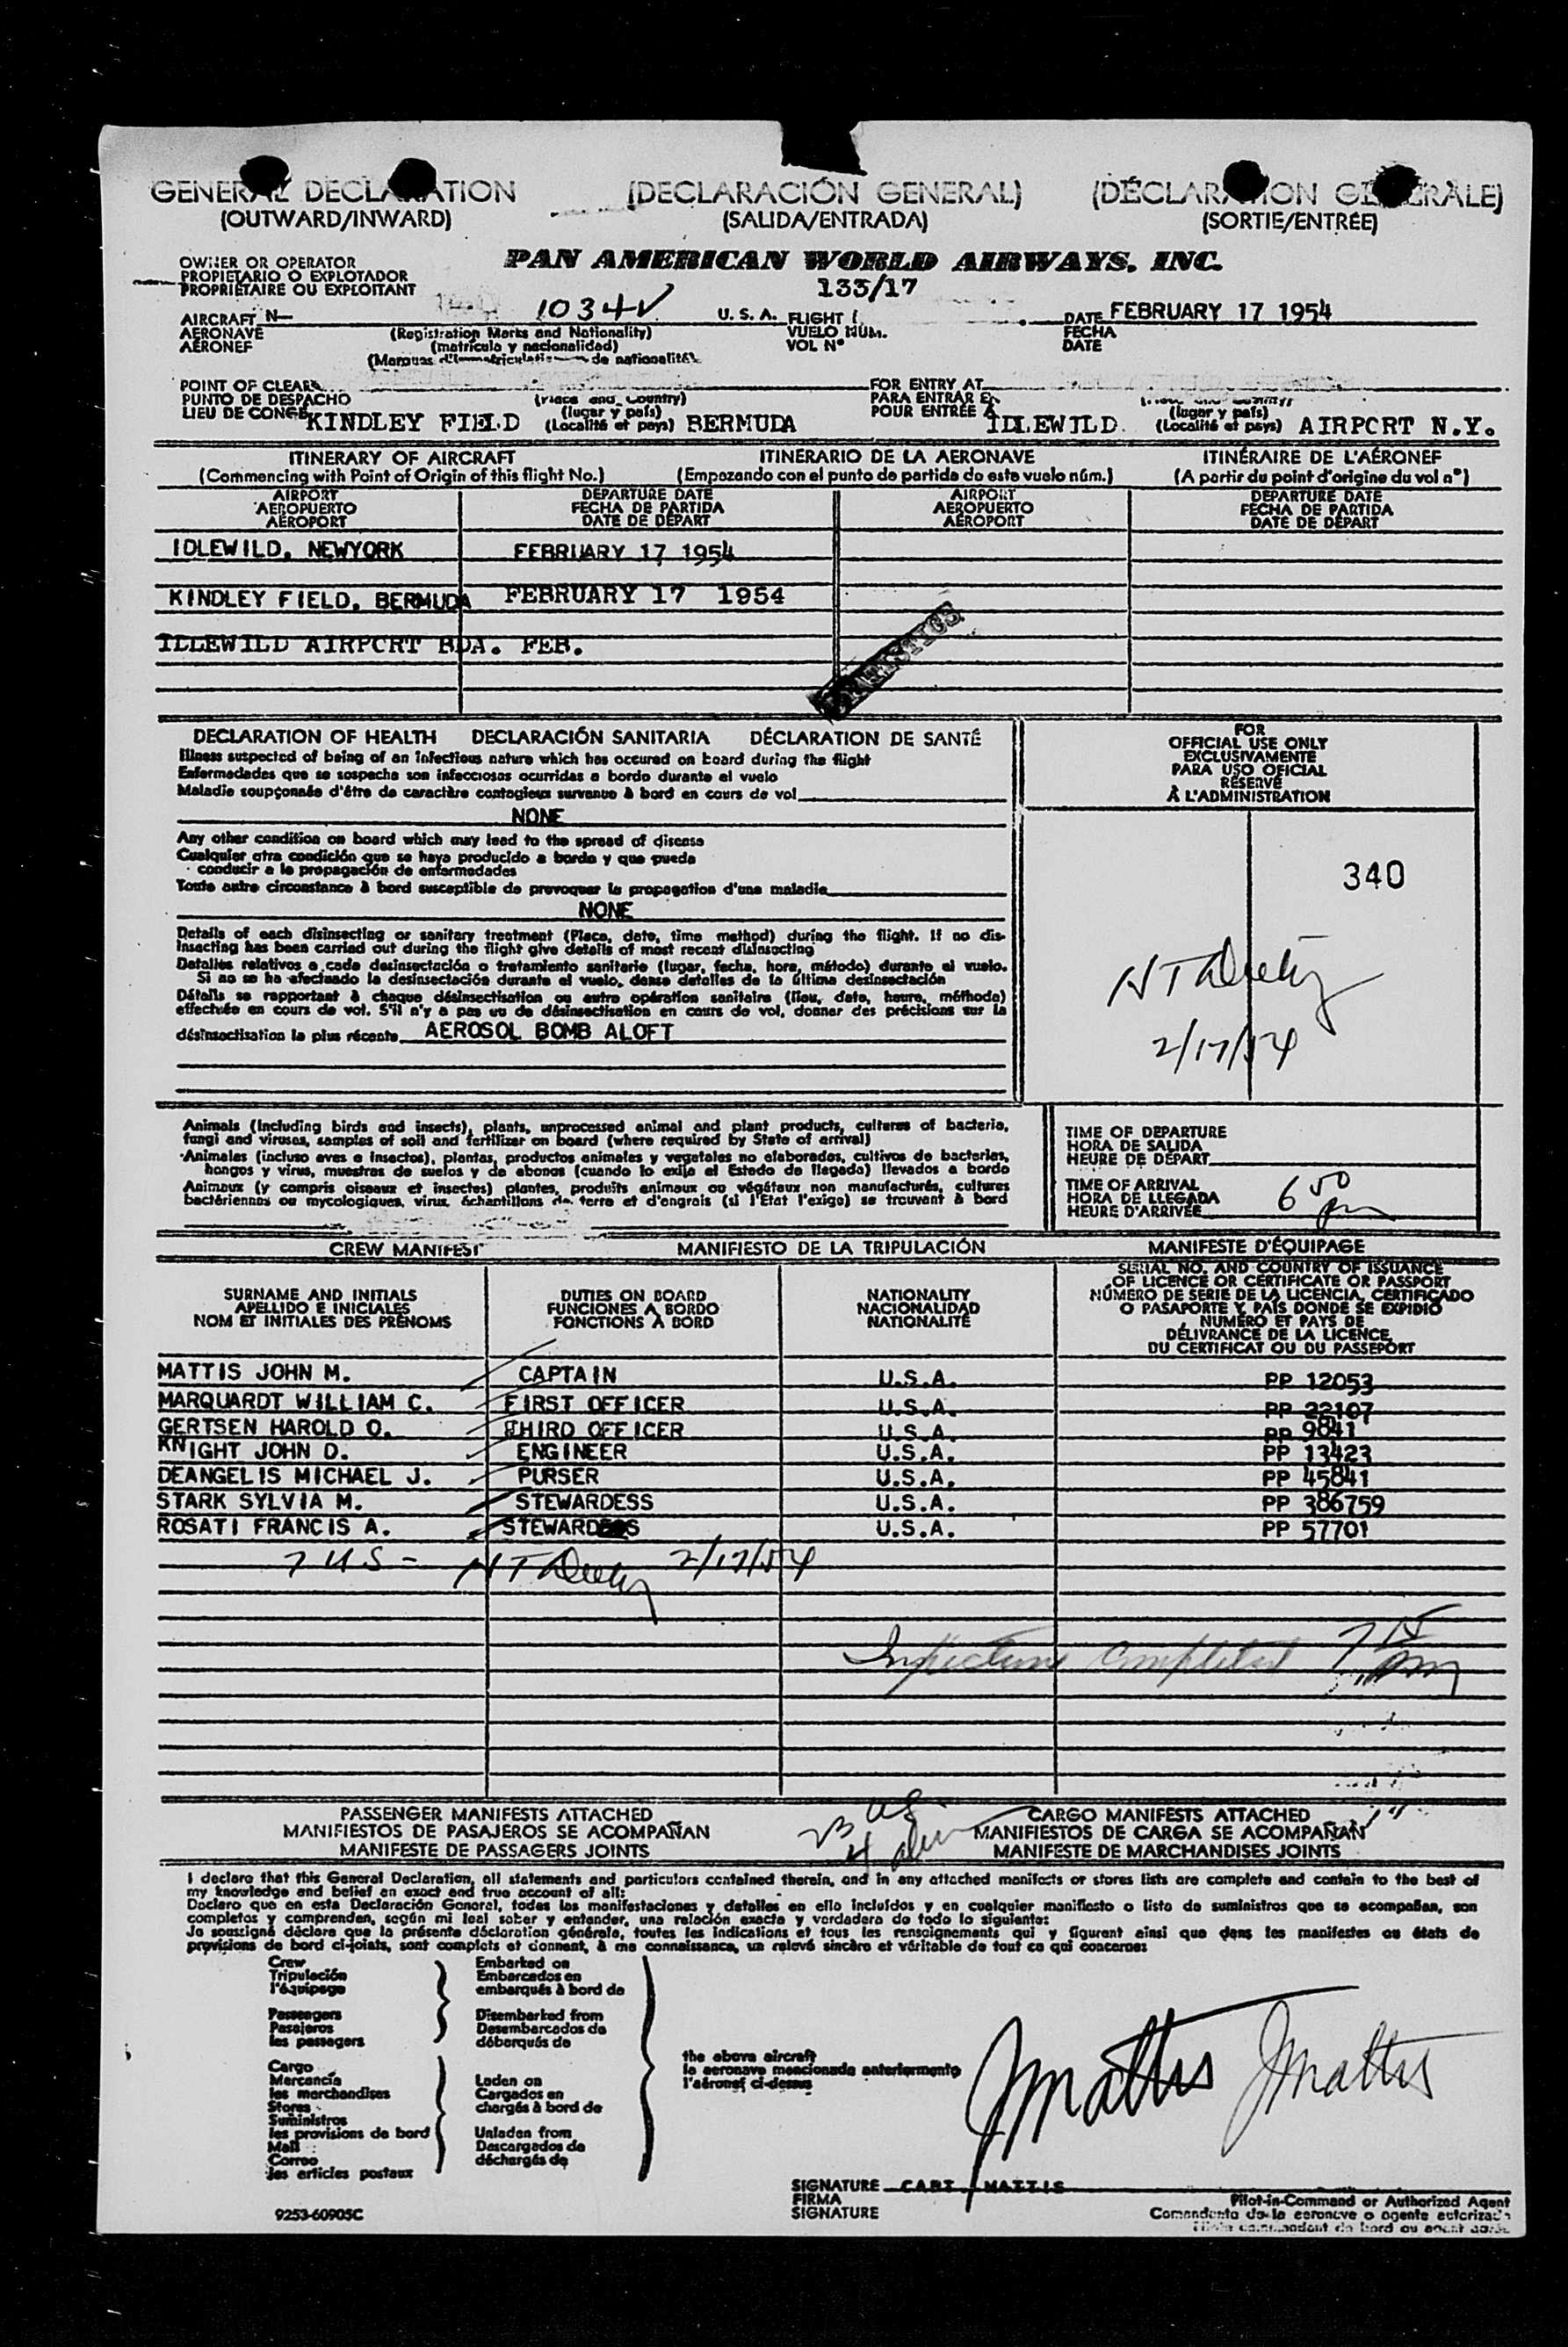 GENERAL DECLARATION (DECLARACIÓN GENERAL) (DÉCLARATION GÉNÉRALE)
(OUTWARD/INWARD) (SALIDA/ENTRADA) (SORTIE/ENTRÉE)
OWNER OR OPERATOR
PROPIETARIO O EXPLOTADOR
PROPRIÉTAIRE OU EXPLOITANT
PAN AMERICAN WORLD AIRWAYS, INC.
133/17
AIRCRAFT N— 1034V U. S. A. FLIGHT DATE FEBRUARY 17 1954
AERONAVE (Registration Marks and Nationality) VUELO NUM. FECHA
AÉRONEF (matrícula y nacionalidad) VOL Nº DATE
(Marques d'Immatriculation de nationalité)
POINT OF CLEAR. FOR ENTRY AT
PUNTO DE DESPACHO (Place and Country) PARA ENTRAR EN
LIEU DE CONGÉ KINDLEY FIELD (lugar y país) (Localité et pays) BERMUDA POUR ENTRÉE À IDLEWILD (lugar y país) (Localité et pays) AIRPORT N.Y.
ITINERARY OF AIRCRAFT ITINERARIO DE LA AERONAVE ITINÉRAIRE DE L'AÉRONEF
(Commencing with Point of Origin of this flight No.) (Empezando con el punto de partida do este vuelo núm.) (A partir du point d'origine du vol nº)
AIRPORT DEPARTURE DATE AIRPORT DEPARTURE DATE
AEROPUERTO FECHA DE PARTIDA AEROPUERTO FECHA DE PARTIDA
AÉROPORT DATE DE DÉPART AÉROPORT DATE DE DÉPART
IDLEWILD, NEWYORK FEBRUARY 17 1954
KINDLEY FIELD, BERMUDA FEBRUARY 17 1954
IDLEWILD AIRPORT BDA. FEB.
DECLARATION OF HEALTH DECLARACIÓN SANITARIA DÉCLARATION DE SANTÉ
Illness suspected of being of an infectious nature which has occured on board during the flight
Enfermedades que se sospecha son infecciosas ocurridas a bordo durante el vuelo
Maladie soupçonnée d'être de caractère contagieux survenue à bord en cours de vol
NONE
Any other condition on board which may lead to the spread of disease
Cualquier otra condición que se haya producido a bordo y que pueda
conducir a la propagación de enfermedades
Toute autre circonstance à bord susceptible de provoquer la propagation d'une maladie
NONE
Details of each disinsecting or sanitary treatment (Place, date, time method) during the flight. If no dis-
insecting has been carried out during the flight give details of most recent disinsecting
Detalles relativos a cada desinsectación o tratamiento sanitario (lugar, fecha, hora, método) durante el vuelo.
Si no se ha efectuado la desinsectación durante el vuelo, dense detalles de la última desinsectación
Détails se rapportant à chaque désinsectisation ou autre opération sanitaire (lieu, date, heure, méthode)
effectuée en cours de vol. S'il n'y a pas eu de désinsectisation en cours de vol, donner des précisions sur la
désinsectisation la plus récente AEROSOL BOMB ALOFT
FOR
OFFICIAL USE ONLY
EXCLUSIVAMENTE
PARA USO OFICIAL
RÉSERVÉ
À L'ADMINISTRATION
340
2/17/54
Animals (including birds and insects), plants, unprocessed animal and plant products, cultures of bacteria,
fungi and viruses, samples of soil and fertilizer on board (where required by State of arrival)
Animales (incluso aves e insectos), plantas, productos animales y vegetales no elaborados, cultivos de bacterias,
hongos y virus, muestras de suelos y de abonos (cuando lo exija el Estado de llegada) llevados a bordo
Animaux (y compris oiseaux et insectes) plantes, produits animaux ou végétaux non manufacturés, cultures
bactériennes ou mycologiques, virus, échantillons de terre et d'engrais (si l'Etat l'exige) se trouvant à bord
TIME OF DEPARTURE
HORA DE SALIDA
HEURE DE DÉPART
TIME OF ARRIVAL
HORA DE LLEGADA
HEURE D'ARRIVÉE 6 50 pm
CREW MANIFEST MANIFIESTO DE LA TRIPULACIÓN MANIFESTE D'ÉQUIPAGE
SURNAME AND INITIALS
APELLIDO E INICIALES
NOM ET INITIALES DES PRÉNOMS
DUTIES ON BOARD
FUNCIONES A BORDO
FONCTIONS À BORD
NATIONALITY
NACIONALIDAD
NATIONALITÉ
SERIAL NO. AND COUNTRY OF ISSUANCE
OF LICENCE OR CERTIFICATE OR PASSPORT
NÚMERO DE SERIE DE LA LICENCIA, CERTIFICADO
O PASAPORTE Y PAÍS DONDE SE EXPIDIÓ
NUMÉRO ET PAYS DE
DÉLIVRANCE DE LA LICENCE,
DU CERTIFICAT OU DU PASSEPORT
MATTIS JOHN M. CAPTAIN U.S.A. PP 12053
MARQUARDT WILLIAM C. FIRST OFFICER U.S.A. PP 22107
GERTSEN HAROLD O. THIRD OFFICER U.S.A. PP 9841
KNIGHT JOHN D. ENGINEER U.S.A. PP 13423
DEANGELIS MICHAEL J. PURSER U.S.A. PP 45841
STARK SYLVIA M. STEWARDESS U.S.A. PP 386759
ROSATI FRANCIS A. STEWARD U.S.A. PP 57701
7 US - 2/17/54
Inspection completed 7 15 pm
23 US
4 alien
PASSENGER MANIFESTS ATTACHED CARGO MANIFESTS ATTACHED
MANIFIESTOS DE PASAJEROS SE ACOMPAÑAN MANIFIESTOS DE CARGA SE ACOMPAÑAN
MANIFESTE DE PASSAGERS JOINTS MANIFESTE DE MARCHANDISES JOINTS
I declare that this General Declaration, all statements and particulars contained therein, and in any attached manifests or stores lists are complete and contain to the best of
my knowledge and belief an exact and true account of all:
Declaro que en esta Declaración General, todas las manifestaciones y detalles en ello incluídos y en cualquier manifiesto o lista de suministros que se acompañan, son
completos y comprenden, según mi leal saber y entender, una relación exacta y verdadera de todo lo siguiente:
Je soussigné déclare que la présente déclaration générale, toutes les indications et tous les renseignements qui y figurent ainsi que dans les manifestes ou états de
provisions de bord ci-joints, sont complets et donnent, à ma connaissance, un relevé sincère et véritable de tout ce qui concerne:
Crew Embarked on
Tripulación Embarcados en
l'équipage embarqués à bord de
Passengers Disembarked from
Pasajeros Desembarcados de
les passagers débarqués de
Cargo
Mercancía Laden on
les marchandises Cargados en
Stores chargés à bord de
Suministros
les provisions de bord Unladen from
Mail Descargados de
Correo déchargés de
les articles postaux
the above aircraft
la aeronave mencionada anteriormente
l'aéronef ci-dessus
JMattis JMattis
SIGNATURE CAPT. MATTIS
FIRMA
SIGNATURE
Pilot-in-Command or Authorized Agent
Comandante de la aeronave o agente autorizado
9253-60905C